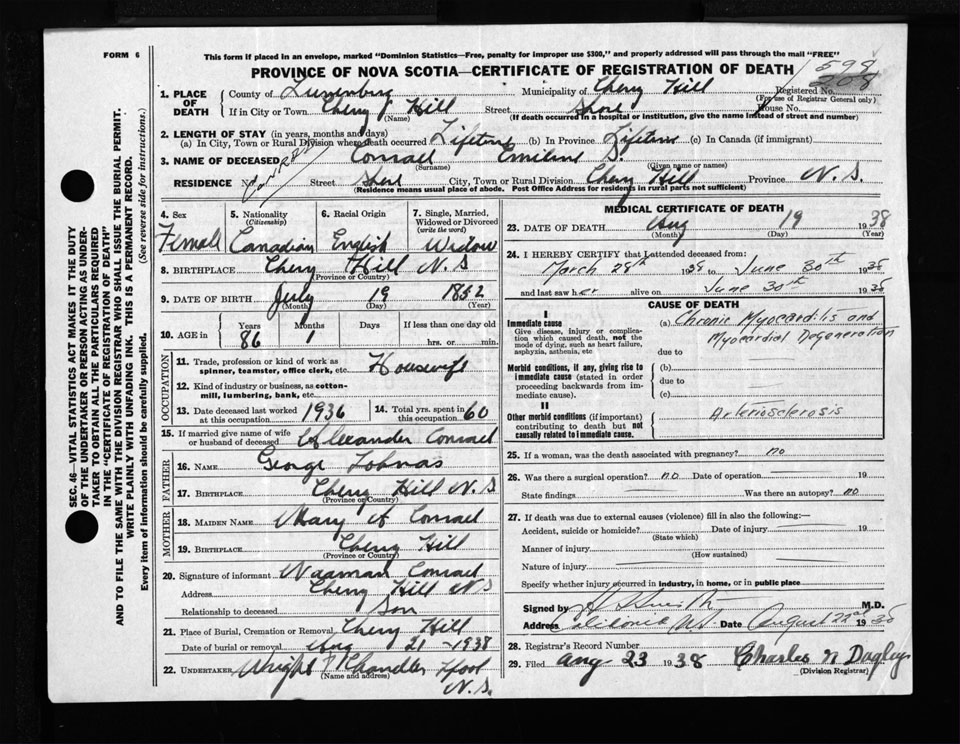 FORM 6
This form if placed in an envelope, marked "Dominion Statistics—Free, penalty for improper use $300," and properly addressed will pass through the mail "FREE"
PROVINCE OF NOVA SCOTIA—CERTIFICATE OF REGISTRATION OF DEATH
598
208
SEC. 46—VITAL STATISTICS ACT MAKES IT THE DUTY
OF THE UNDERTAKER OR PERSON ACTING AS UNDER-
TAKER TO OBTAIN ALL THE PARTICULARS REQUIRED
IN THE "CERTIFICATE OF REGISTRATION OF DEATH"
AND TO FILE THE SAME WITH THE DIVISION REGISTRAR WHO SHALL ISSUE THE BURIAL PERMIT.
WRITE PLAINLY WITH UNFADING INK. THIS IS A PERMANENT RECORD.
Every item of information should be carefully supplied. (See reverse side for instructions.)
1. PLACE OF DEATH County of Lunenburg Municipality of Cherry Hill Registered No.
(For use of Registrar General only)
If in City or Town Cherry Hill Street Shore House No.
(Name) (If death occurred in a hospital or institution, give the name instead of street and number)
2. LENGTH OF STAY (in years, months and days)
(a) In City, Town or Rural Division where death occurred Lifetime (b) In Province Lifetime (c) In Canada (if immigrant)
3. NAME OF DECEASED Conrad Emiline S.
(Surname) (Given name or names)
RESIDENCE No. Street Shore City, Town or Rural Division Cherry Hill Province N. S.
(Residence means usual place of abode. Post Office Address for residents in rural parts not sufficient)
4. Sex Female
5. Nationality (Citizenship) Canadian
6. Racial Origin English
7. Single, Married, Widowed or Divorced (write the word) Widow
8. BIRTHPLACE Cherry Hill N S
(Province or Country)
9. DATE OF BIRTH July 19 1852
(Month) (Day) (Year)
10. AGE in Years Months Days If less than one day old
86 1 hrs. or min.
OCCUPATION
11. Trade, profession or kind of work as spinner, teamster, office clerk, etc. Housewife
12. Kind of industry or business, as cotton-mill, lumbering, bank, etc.
13. Date deceased last worked at this occupation 1936
14. Total yrs. spent in this occupation 60
15. If married give name of wife or husband of deceased Alexander Conrad
FATHER
16. NAME George
17. BIRTHPLACE Cherry Hill N. S
(Province or Country)
MOTHER
18. MAIDEN NAME Mary A Conrad
19. BIRTHPLACE Cherry Hill
(Province or Country)
20. Signature of informant Naaman Conrad
Address Cherry Hill N S
Relationship to deceased Son
21. Place of Burial, Cremation or Removal Cherry Hill
Date of burial or removal Aug 21 - 1938
22. UNDERTAKER Wright Chandler
(Name and address)
N. S.
MEDICAL CERTIFICATE OF DEATH
23. DATE OF DEATH Aug 19 1938
(Month) (Day) (Year)
24. I HEREBY CERTIFY that I attended deceased from:
March 28th 1938 to June 30th 1938
and last saw her alive on June 30th 1938
CAUSE OF DEATH
I
Immediate cause
Give disease, injury or complication which caused death, not the mode of dying, such as heart failure, asphyxia, asthenia, etc
(a) Chronic Myocarditis and
Myocardial Degeneration
due to
Morbid conditions, if any, giving rise to immediate cause (stated in order proceeding backwards from immediate cause).
(b)
due to
(c)
II
Other morbid conditions (if important) contributing to death but not causally related to immediate cause.
Arteriosclerosis
25. If a woman, was the death associated with pregnancy? no
26. Was there a surgical operation? no Date of operation 19
State findings Was there an autopsy? no
27. If death was due to external causes (violence) fill in also the following:—
Accident, suicide or homicide? Date of injury 19
(State which)
Manner of injury
(How sustained)
Nature of injury
Specify whether injury occurred in industry, in home, or in public place
Signed by Smith M.D.
Address Date August 22nd 1938
28. Registrar's Record Number
29. Filed Aug 23 1938 Charles N Dagley
(Division Registrar)